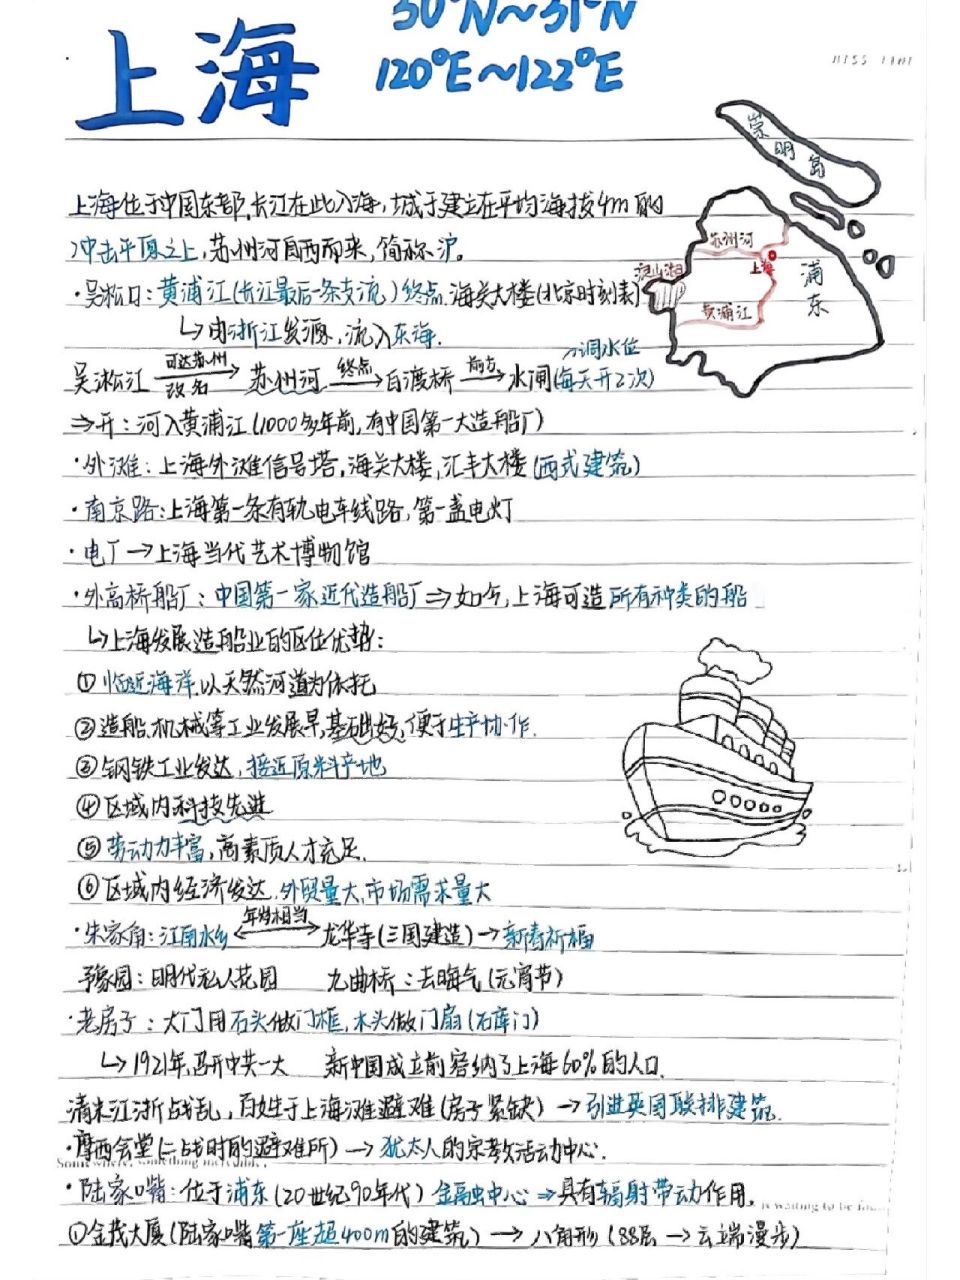 上海
30°N～31°N
120°E～122°E
崇明岛
苏州河
淀山湖
上海
浦东
黄浦江
上海位于中国东部,长江在此入海,城于建立在平均海拔4m的
冲击平原之上,苏州河自西而来,简称沪。
·吴淞口:黄浦江(长江最后一条支流)终点.海关大楼(北京时刻表)
↳由浙江发源,流入东海.
→调水位
吴淞江 可达苏州 改名→ 苏州河 终点→ 白渡桥 前方→ 水闸(每天开2次)
⇒开:河入黄浦江(1000多年前,有中国第一大造船厂)
·外滩:上海外滩信号塔,海关大楼,汇丰大楼(西式建筑)
·南京路:上海第一条有轨电车线路,第一盏电灯
·电厂→上海当代艺术博物馆
·外高桥船厂:中国第一家近代造船厂⇒如今,上海可造所有种类的船
↳上海发展造船业的区位优势:
①临近海洋,以天然河道为依托
②造船、机械等工业发展早,基础好,便于生产协作.
③钢铁工业发达,接近原料产地
④区域内科技先进
⑤劳动力丰富,高素质人才充足.
⑥区域内经济发达,外贸量大,市场需求量大
·朱家角:江南水乡 ←年龄相当→ 龙华寺(三国建造)→新春祈福
豫园:明代私人花园 九曲桥:去晦气(元宵节)
·老房子:大门用石头做门框,木头做门扇(石库门)
↳1921年,召开中共一大 新中国成立前容纳了上海60%的人口.
清末江浙战乱,百姓于上海滩避难(房子紧缺)→引进英国联排建筑.
·摩西会堂(二战时的避难所)→犹太人的宗教活动中心.
Somewhere, something incredible
·陆家嘴:位于浦东(20世纪90年代)金融中心⇒具有辐射带动作用.
is waiting to be
①金茂大厦(陆家嘴第一座超400m的建筑)→八角形(88层→云端漫步)